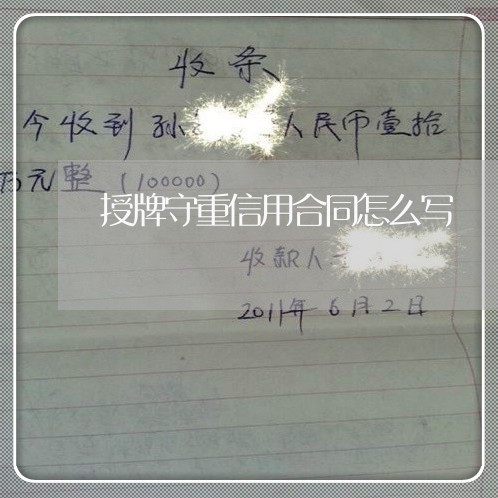 收条
今收到孙人民币壹拾
万元整（100000）
授牌守重信用合同怎么写
收款人
2011年6月2日